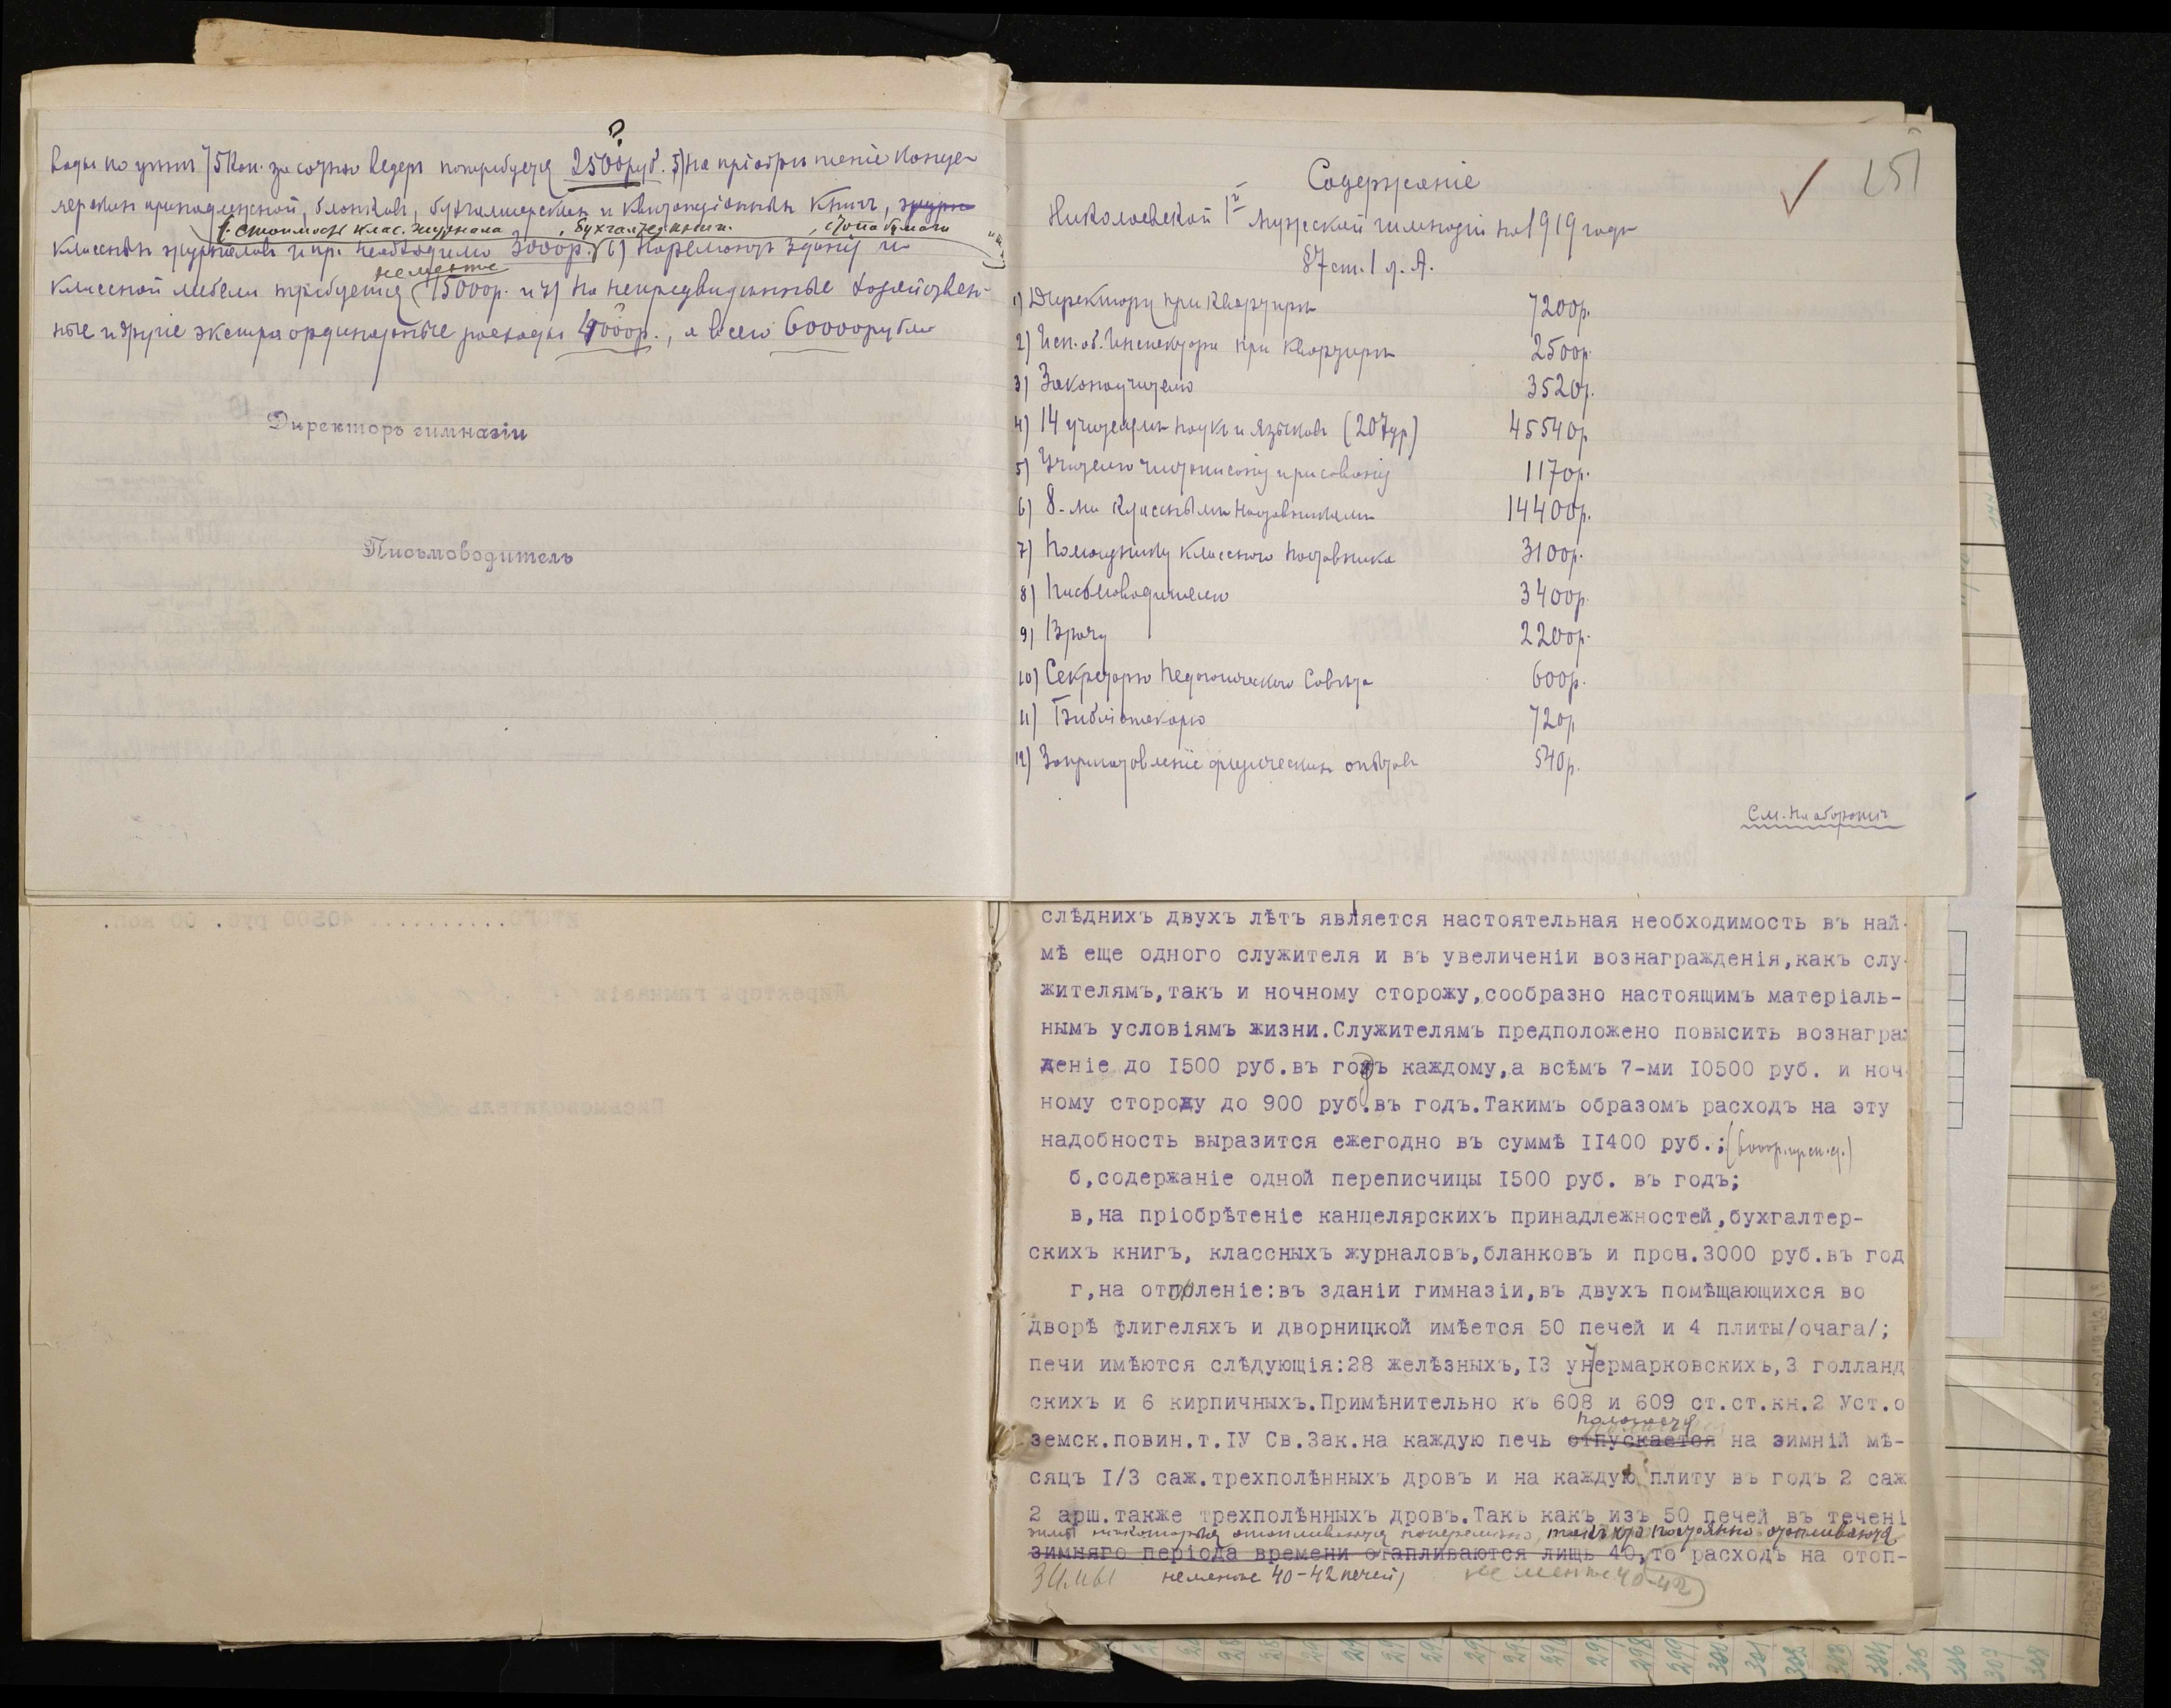 ?
воды по цѣнѣ 75 коп. за сотню ведеръ потребуется 2500 руб. 5) на пріобрѣтеніе канце-
лярскихъ принадлежностей, бланковъ, бухгалтерскихъ и квитанціонныхъ книгъ,
(: стоимость клас. журнала , бухгалтер. книги. , стопа бумаги
классныхъ журналовъ и пр. необходимо 3000 р. 6) на ремонтъ зданія и
не менѣе
классной мебели требуется 15000 р. и 7) на непредвидѣнные хозяйствен-
ные и другіе экстраординарные расходы 4000 р., а всего 60000 рубле
Директоръ гимназіи
Письмоводитель
251
Содержаніе
Николаевской 1й мужской гимназіи на 1919 годъ
§7 ст. 1 л. А.
1) Директору при квартирѣ 7200р.
2) Исп. об. Инспектора при квартирѣ 2500р.
3) Законоучителю 3520р.
4) 14 учителямъ наукъ и языковъ (207 ур) 45540р
5) Учителю чистописанія и рисованія 1170р.
6) 8-ми класснымъ наставникамъ 14400р.
7) Помощнику классного наставника 3100р.
8) Письмоводителю 3400р.
9) Врачу 2200р.
10) Секретарю Педагогическаго Совѣта 600р.
11) Библіотекарю 720р
12) За приготовленіе физическихъ опытовъ 540р.
См. на оборотѣ
слѣднихъ двухъ лѣтъ является настоятельная необходимость въ най-
мѣ еще одного служителя и въ увеличеніи вознагражденія,какъ слу-
жителямъ,такъ и ночному сторожу,сообразно настоящимъ матеріаль-
нымъ условіямъ жизни.Служителямъ предположено повысить вознаграж
деніе до I500 руб.въ годъ каждому,а всѣмъ 7-ми I0500 руб. и ноч-
ному сторожу до 900 руб.въ годъ.Такимъ образомъ расходъ на эту
надобность выразится ежегодно въ суммѣ II400 руб.;
б,содержаніе одной переписчицы I500 руб. въ годъ;
в,на пріобрѣтеніе канцелярскихъ принадлежностей,бухгалтер-
скихъ книгъ, классныхъ журналовъ,бланковъ и проч.3000 руб.въ год
г,на отопленіе:въ зданіи гимназіи,въ двухъ помѣщающихся во
дворѣ флигеляхъ и дворницкой имѣется 50 печей и 4 плиты/очага/;
печи имѣются слѣдующія:28 желѣзныхъ,I3 унермарковскихъ,3 голланд
скихъ и 6 кирпичныхъ.Примѣнительно къ 608 и 609 ст.ст.кн.2 Уст.о
полагается
земск.повин.т.IУ Св.Зак.на каждую печь отпускается на зимній мѣ-
сяцъ I/3 саж.трехполѣнныхъ дровъ и на каждую плиту въ годъ 2 саж
2 арш.также трехполѣнныхъ дровъ.Такъ какъ изъ 50 печей въ течені
зимы нѣкоторыя отапливаются поперемѣнно, постоянно отапливаются
зимняго періода времени отапливаются лищь 40,то расходъ на отоп-
зимы не менѣе 40-42 печей, не менѣе 40-42